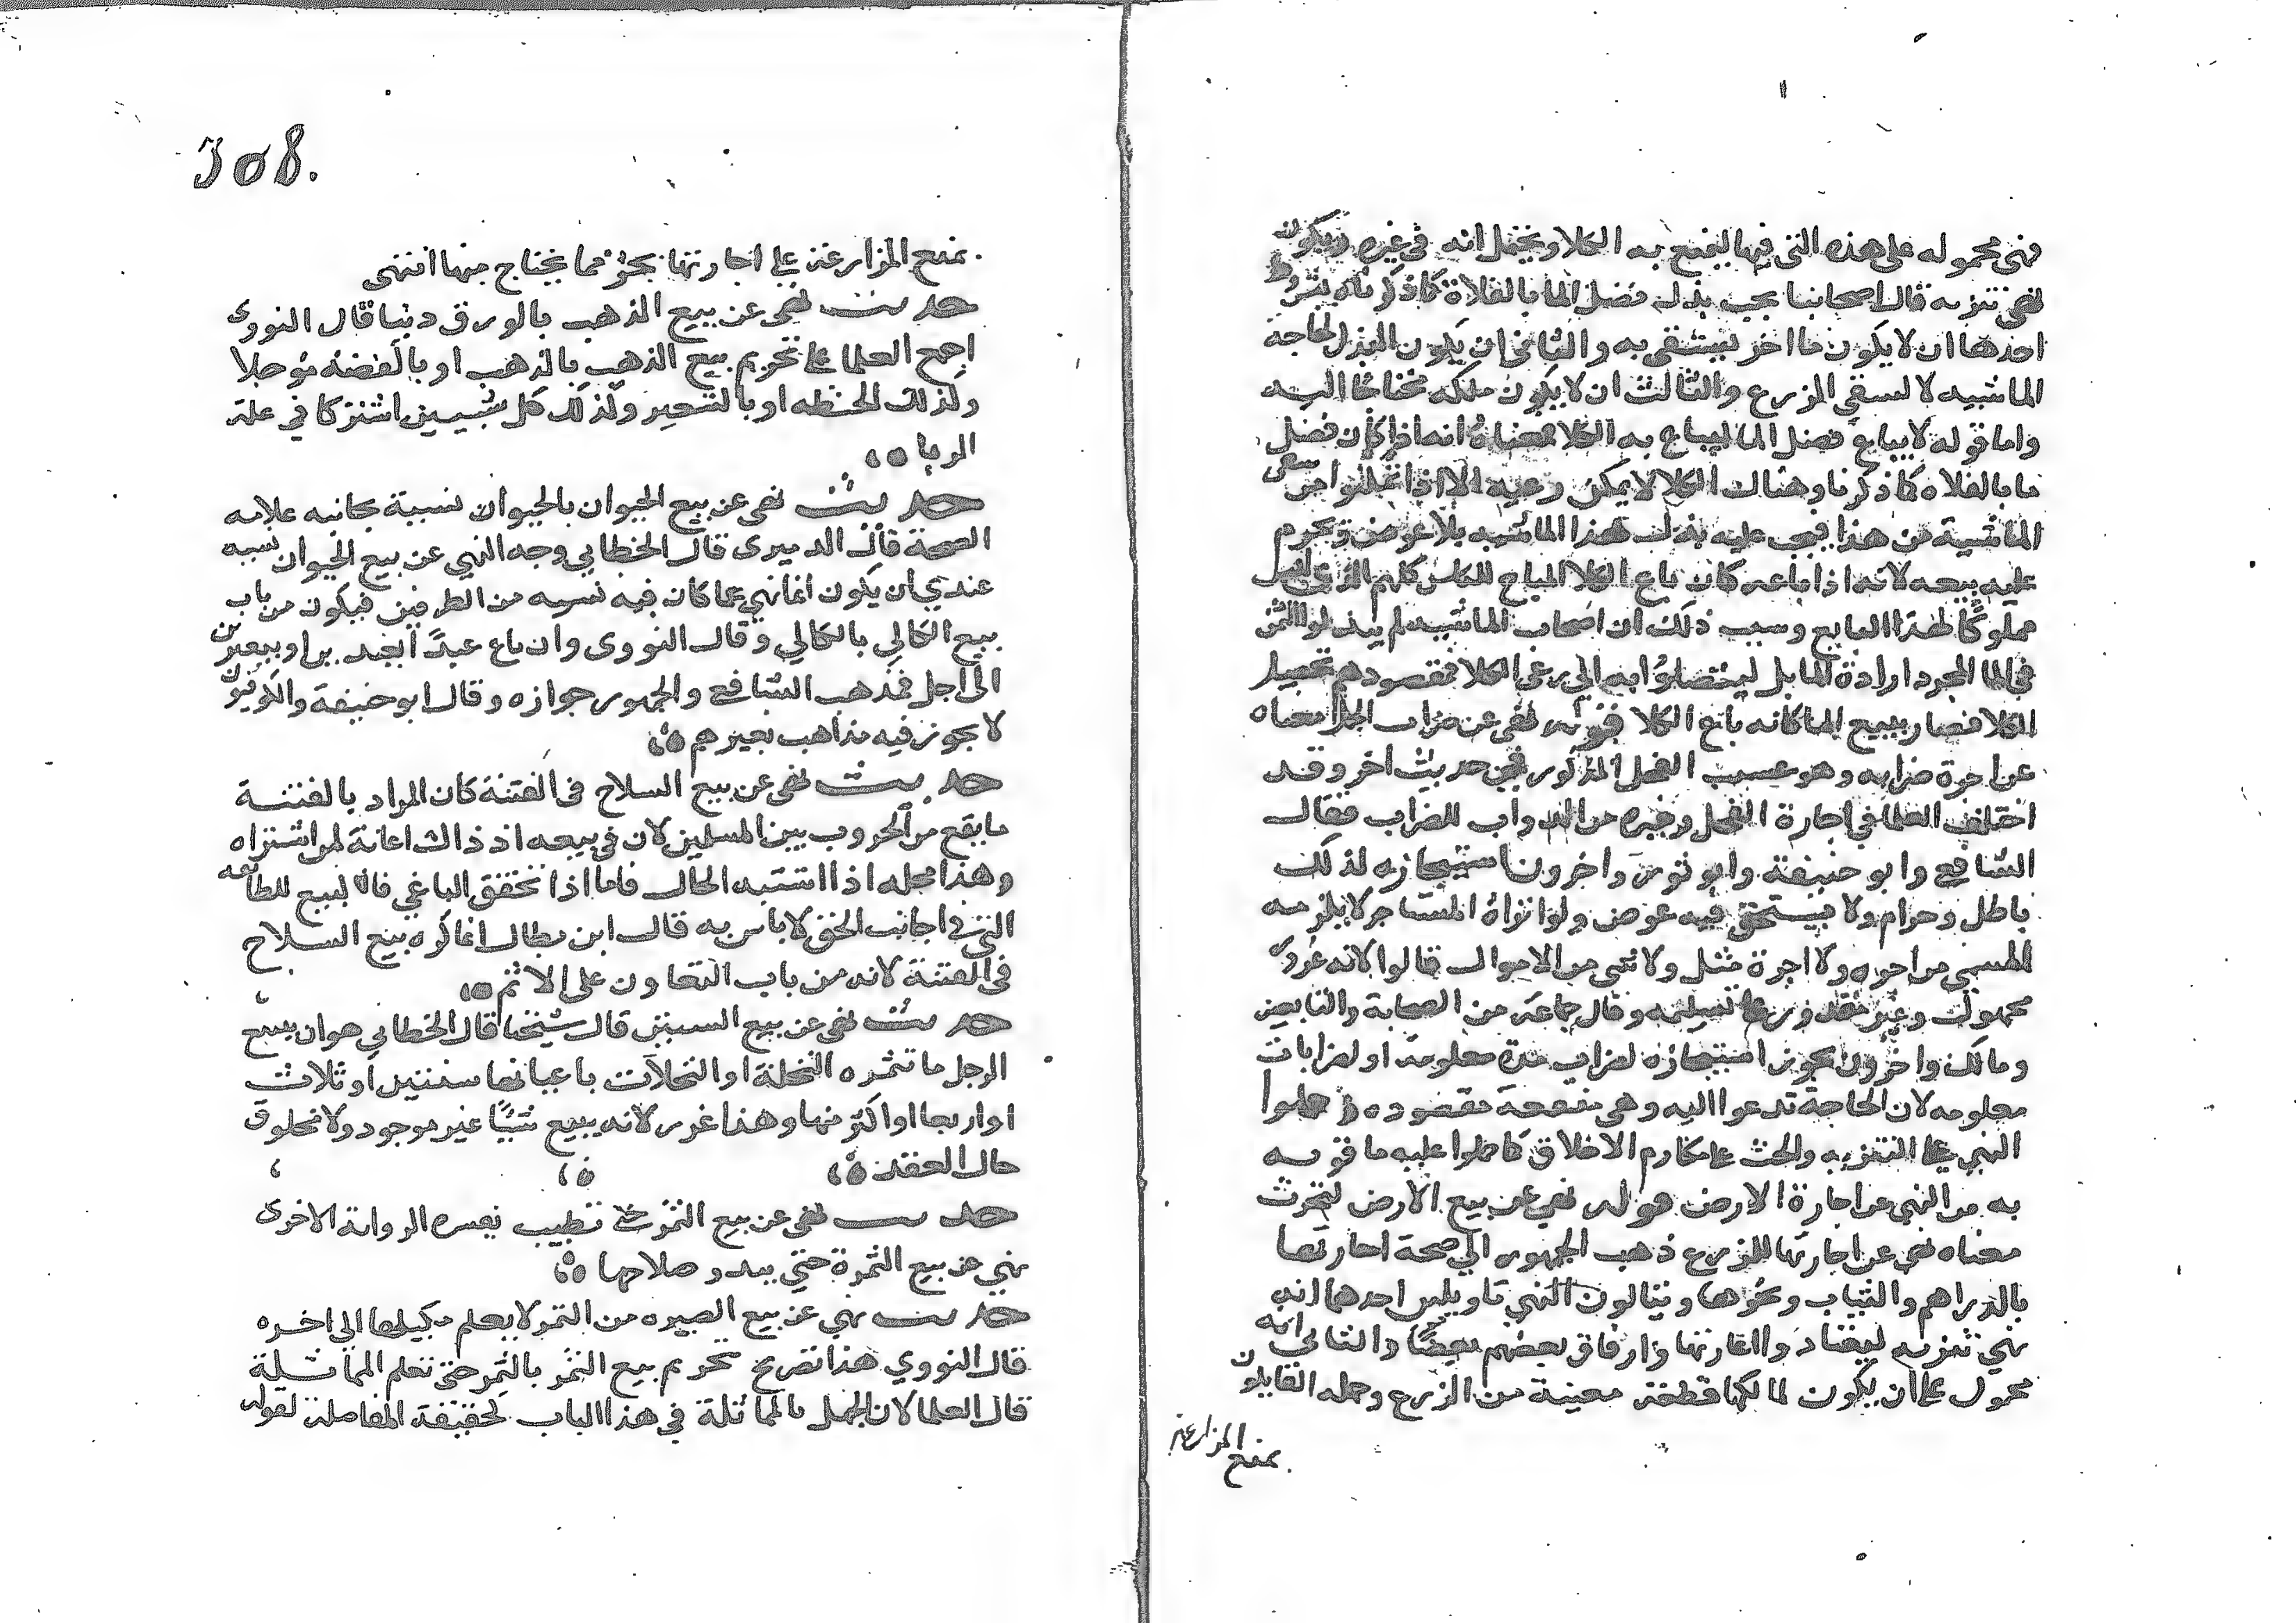 فهى محموله على هذه التى فيها ليمنع به الكلا ويحتمل انه فى غيره ويكون
نهى تنزيه قال اصحابنا يجب بذل فضل الما بالفلاة كما ذكرناه بشروط
احدها ان لا يكون ما اخر يستقى به والثانى ان يكون البذل لحاجة
الماشيه لا لسقي الزرع والثالث ان لا يكون ملكه محتاجا اليه
واما قوله لا يباع فضل الما ليباع به الكلا فمعناه انه اذا كان فضل
ما بالفلاه كما ذكرنا وهناك الكلا لا يمكن رعيه الا اذا تمكنوا من سقى
الماشية من هذا فيجب عليه بذل هذا الماشيه بلا عوض ويحرم
عليه بيعه لانه اذا باعه كان باع الكلا المباح للناس كلهم الذى ليس
مملوكًا لهذا البايع وسبب ذلك ان اصحاب الماشيه لم يبذلوا الثمن
فى الما لمجرد ارادة الما بل ليتوصلوا به الي رعى الكلا فمقصودهم تحصيل
الكلا فصار ببيع الما كانه باع الكلا قوله نهى عن ضراب الجمل معناه
عن اجرة ضرابه وهو عسب الفحل المذكور فى حديث اخر وقد
اختلف العلما في اجارة الفحل وغيره من الدواب للضراب فقال
الشافعي وابو حنيفة وابو ثور واخرون استيجاره لذلك
باطل وحرام ولا يستحق فيه عوض ولو انزاه المستاجر لا يلزمه
المسمى من اجره ولا اجرة مثل ولا شى من الاموال قالوا لانه غرر
مجهول وغير مقدور على تسليمه وقال جماعة من الصحابة والتابعين
ومالك واخرون يجوز استيجاره لضراب مدة معلومة او لضرابات
معلومه لان الحاجة تدعوا اليه وهى منفعة مقصوده وحملوا
النهي على التنزيه والحث على مكارم الاخلاق كما حملوا عليه ما قرنه
به من النهي عن اجارة الارض قوله نهى عن بيع الارض لتحرث
معناه نهى عن اجارتها للزرع ذهب الجمهور الي صحة اجارتها
بالدراهم والثياب ونحوها ويتالون النهي تاويلين احدهما انه
نهي تنزيه ليعتاد واعارتها وارفاق بعضهم بعضًا والثانى انه
محمول على ان يكون لمالكها قطعة معينة من الزرع وحمله القايلون
بمنع المزارعة
يمنع المزارعة على اجارتها بجزء مما يحتاج منها انتهى
حديث نهى عن بيع الذهب بالورق دينا قال النووى
اجمع العلما على تحريم بيع الذهب بالذهب او بالفضه موجلا
وكذلك الحنطه او بالشعير وكذلك كل شييين اشتركا في علة
الربا
حديث نهى عن بيع الحيوان بالحيوان نسيية بجانبه علامه
الصحة قال الدميرى قال الخطابي وجه النهي عن بيع الحيوان نسيه
عندي ان يكون انما نهي عما كان فيه نسيه من الطرفين فيكون من باب
بيع الكالي بالكالي وقال النووى وان باع عبدًا بعبد براو ببعيرين
الى اجل فمذهب الشافعي والجمهور جوازه وقال ابو حنيفة والكوفيون
لا يجوز فيه مذاهب لغيرهم
حديث نهى عن بيع السلاح فى الفتنة كان المراد بالفتنة
ما يقع من الحروب بين المسلمين لان فى بيعه اذ ذاك اعانة لمن اشتراه
وهذا محله اذا اشتبه الحال فاما اذا تحقق الباغي فالبيع للطايفه
التى فى جانب الحق لا باس به قال ابن بطال انما كره بيع السلاح
فى الفتنة لانه من باب التعاون على الاثم
حديث نهى عن بيع السنين قال شيخنا قال الخطابي هو ان يبيع
الرجل ما تثمره النخلة او النخلات باعيانها سنتين او ثلاث
او اربعا او اكثر منها وهذا غرر لانه يبيع شيًا غير موجود ولا مخلوق
حال العقد
حديث نهى عن بيع الثمر حتى تطيب تفسره الرواية الاخرى
نهي عن بيع الثمرة حتي يبدو صلاحها
حديث نهي عن بيع الصبره من التمر لا يعلم مكيلها الى اخره
قال النووي هذا تصريح بتحريم بيع التمر بالتمر حتى تعلم المماثلة
قال العلما لان الجهل بالمماثلة في هذا الباب كحقيقة المفاضلة لقوله
308.